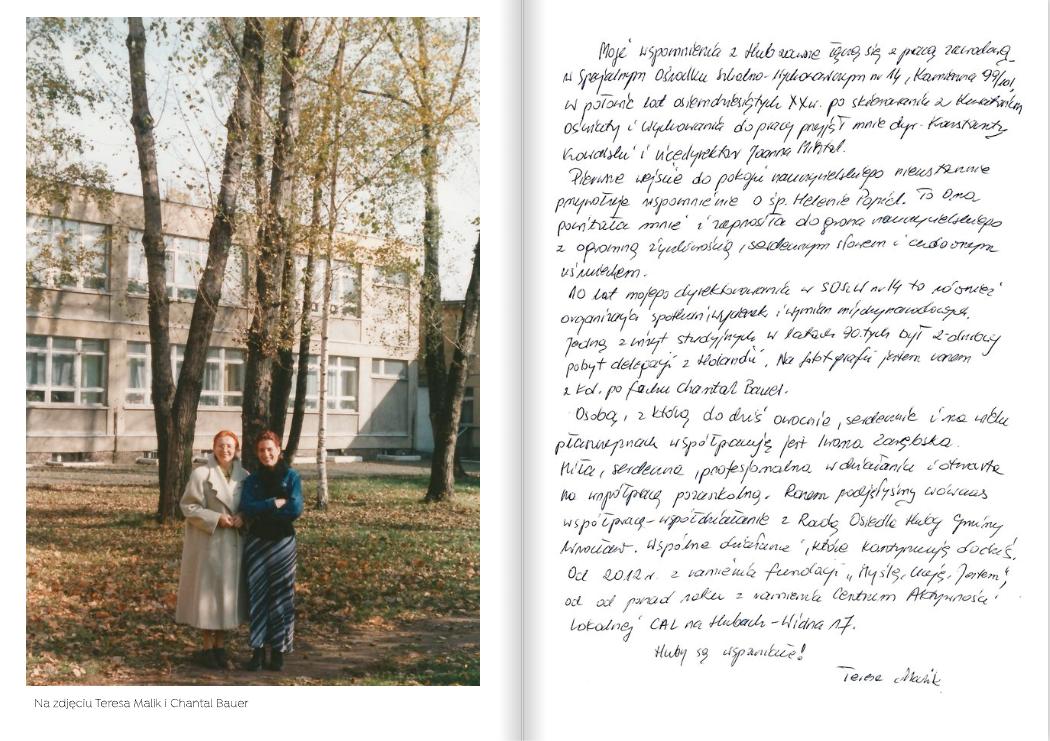 Moje wspomnienia z Hub zawsze łączą się z pracą zawodową
w Specjalnym Ośrodku Szkolno-Wychowawczym nr 14, Kamienna 99/101,
w połowie lat osiemdziesiątych XXw. po skierowaniu z Kuratorium
Oświaty i Wychowania do pracy przyjął mnie dyr. Konstanty
Kowalski i vicedyrektor Joanna
Pierwsze wejście do pokoju nauczycielskiego nieustannie
przywołuje wspomnienie o śp. Helenie To Ona
powitała mnie i zaprosiła do grona nauczycielskiego
z ogromną życzliwością, serdecznym słowem i cudownym
uśmiechem.
10 lat mojego dyrektorowania w SOSzW nr 14 to również
organizacja spotkań, wycieczek i wymian międzynarodowych.
Jedną z wizyt studyjnych w latach 90.tych był 2-dniowy
pobyt delegacji z Holandii. Na fotografii jestem razem
z kol. po fachu Chantal Bauer.
Osobą, z którą do dziś owocnie, serdecznie i na wielu
płaszczyznach współpracuję jest Iwona Zarębska.
Miła, serdeczna, profesjonalna w działaniu i otwarta
na współpracę pozaszkolną. Razem podjęłyśmy wówczas
współpracę-współdziałanie z Radą Osiedla Huby Gminy
Wrocław. Wspólne działanie, które kontynuują do dziś.
Od 2012r. z ramienia fundacji „Myślę, Czuję, Jestem",
od od ponad roku z ramienia Centrum Aktywności
Lokalnej CAL na Hubach-Widna 17.
Huby są wspaniałe!
Teresa Malik
Na zdjęciu Teresa Malik i Chantal Bauer